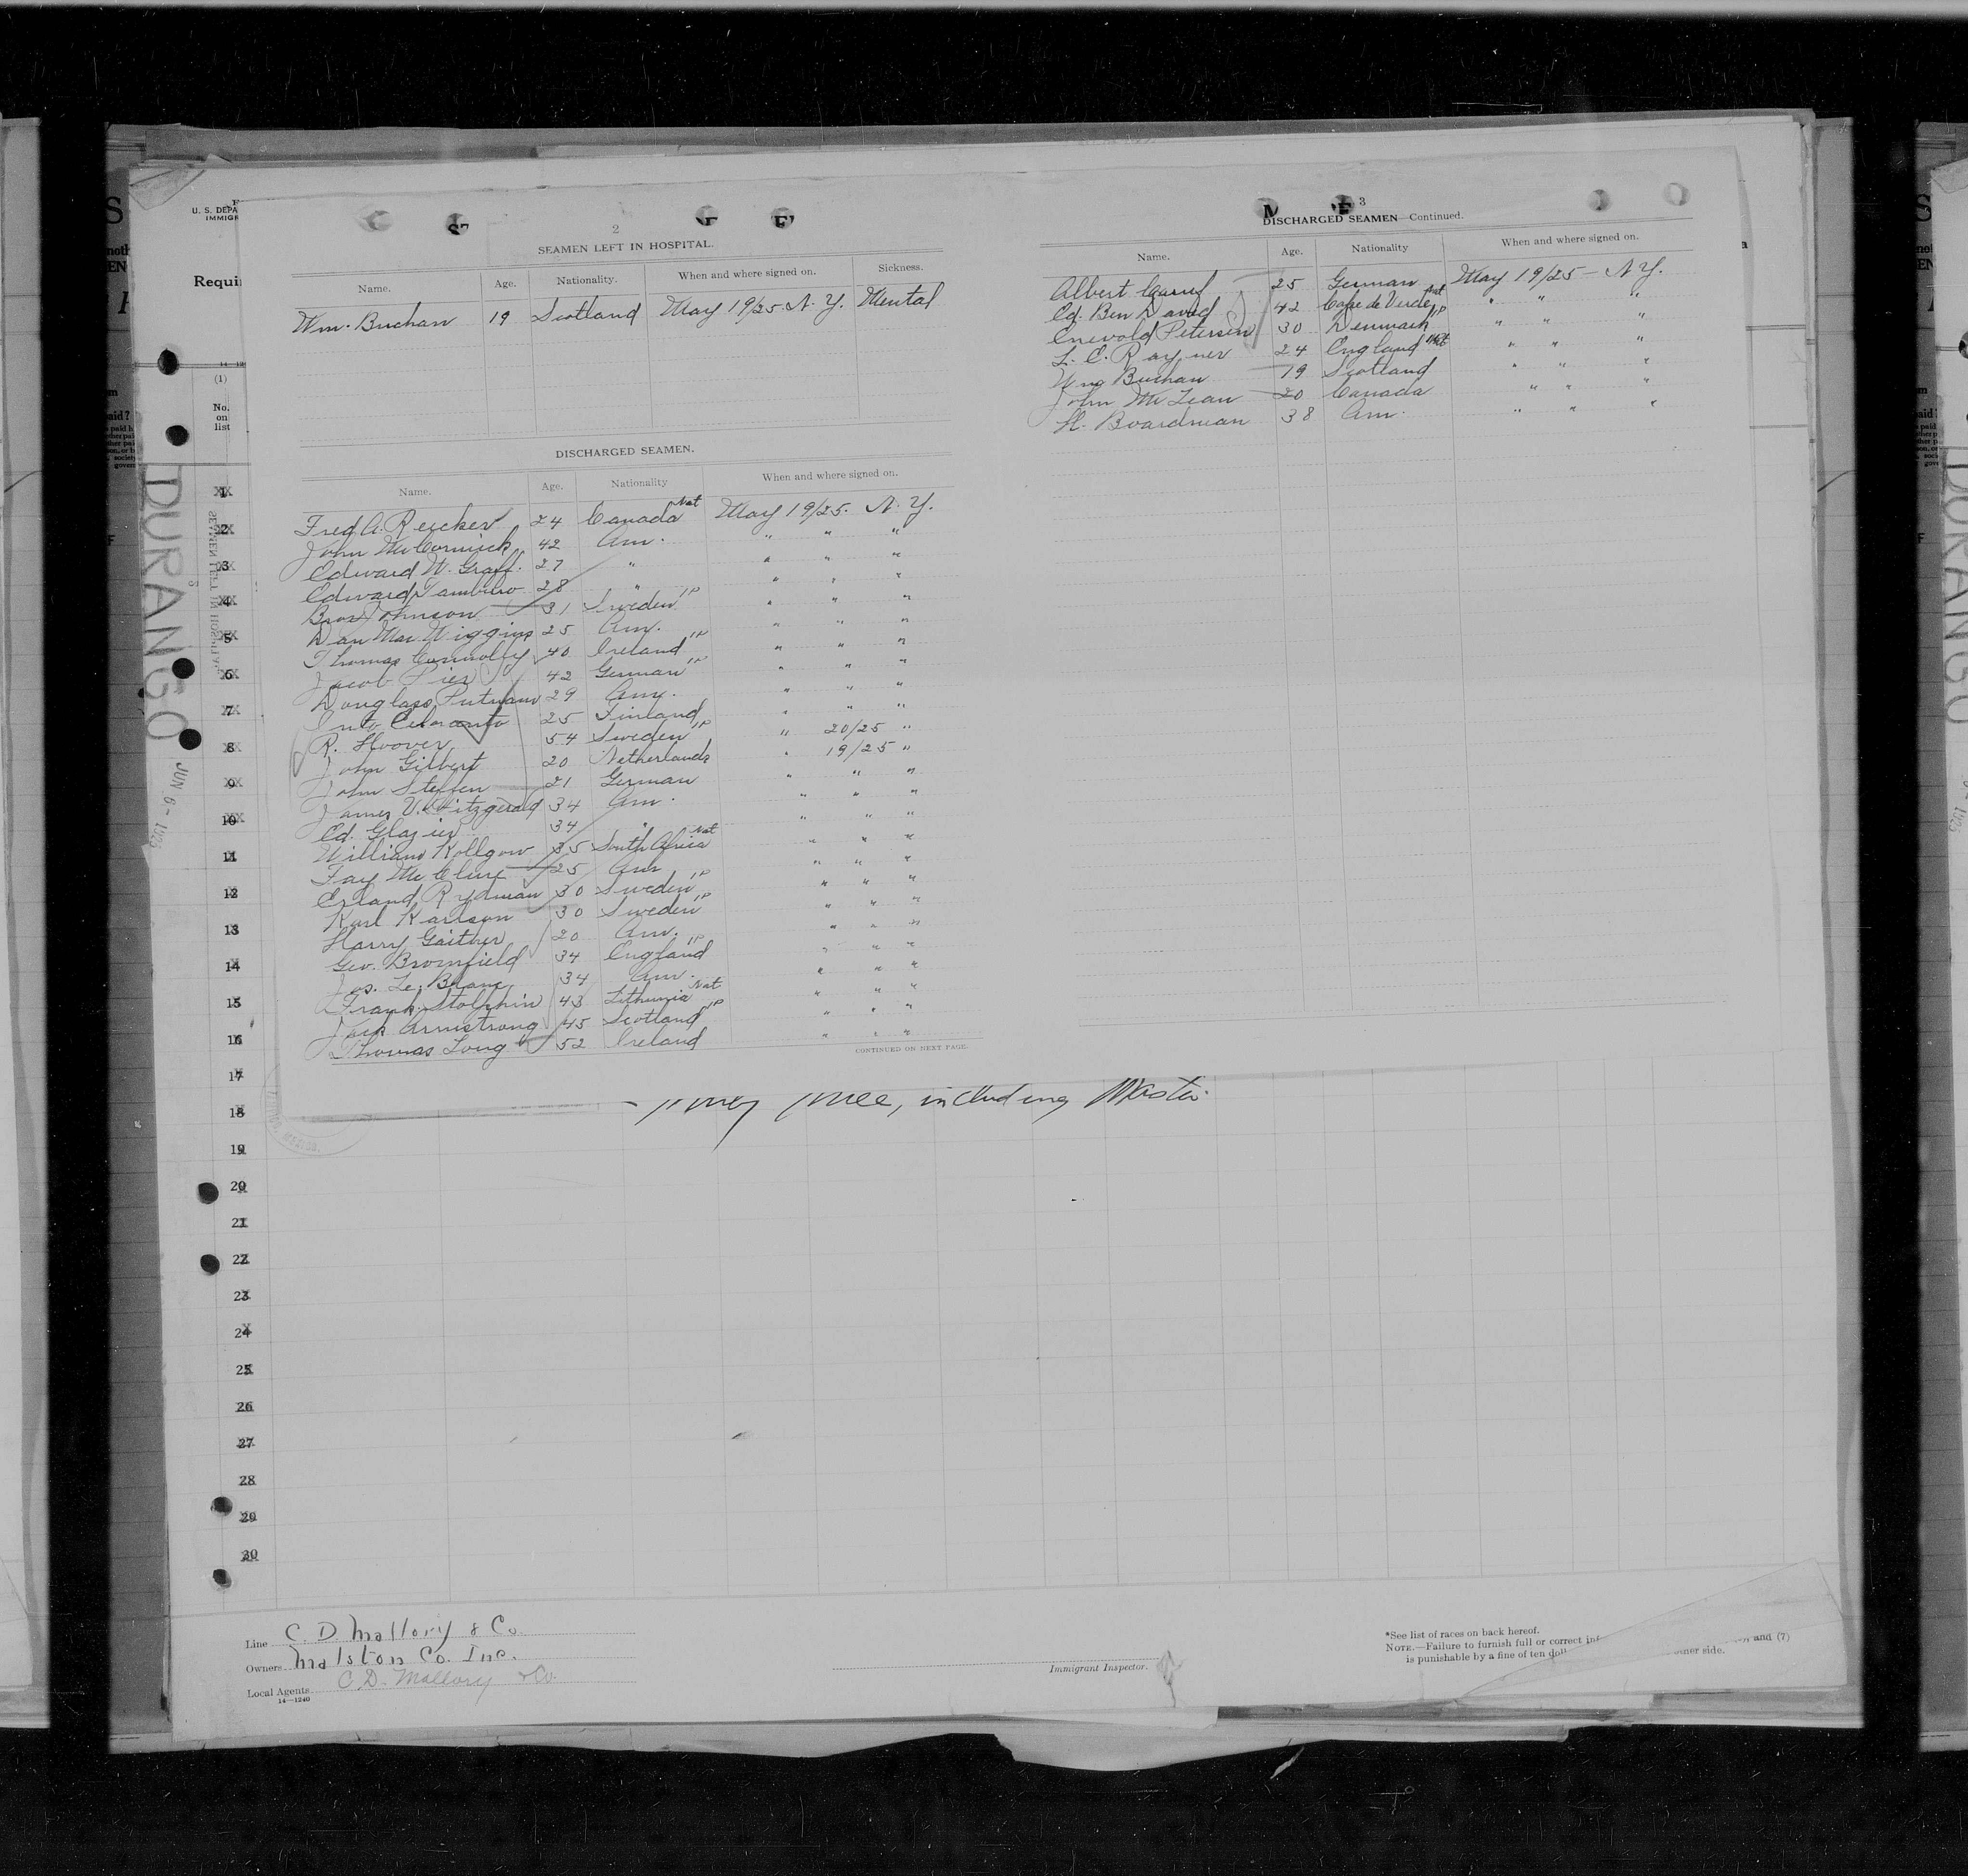 2
SEAMEN LEFT IN HOSPITAL.
Name. Age. Nationality. When and where signed on. Sickness.
Wm. Buchan 19 Scotland May 19/25 N.Y. Mental
DISCHARGED SEAMEN.
Name. Age. Nationality When and where signed on.
Fred A. Reicker 24 Canada Nat May 19/25. N.Y.
John McCormick 42 Am. " " "
Edward W. Graff. 27 " " " "
Edward 28 " " " "
Johnson 31 Sweden 1P " " "
Dan Mac Wiggins 25 Am. " " "
Thomas Connolly 40 Ireland 1P " " "
Jacob Pier 42 German 1P " " "
Douglass Putnam 29 Am. " " "
25 Finland " " "
R. Hoover 54 Sweden 1P " 20/25 "
John Gilbert 20 Netherlands " 19/25 "
John Steffen 21 German " " "
James V. Fitzgerald 34 Am. " " "
Ed. Glazier 34 " " " "
William Kollgow 35 South Africa Nat " " "
Fay McClure 25 Am " " "
Erland Rydman 30 Sweden 1P " " "
Karl Karlson 30 Sweden 1P " " "
Harry Gaither 20 Am. " " "
Geo. Bromfield 34 England 1P " " "
Jos. Le Blanc 34 Am. " " "
Frank Stolphin 43 Lithunia Nat " " "
Jack Armstrong 45 Scotland 1P " " "
Thomas Long 52 Ireland " " "
CONTINUED ON NEXT PAGE.
3
DISCHARGED SEAMEN—Continued.
Name. Age. Nationality When and where signed on.
Albert 25 German May 19/25 - N.Y.
Ed. Ben David 42 Cape de Verde Nat " " "
Enevold Petersen 30 Denmark 1P " " "
L. C. Rayner 24 England " " "
Wm Buchan 19 Scotland " " "
John McLean 20 Canada " " "
H. Boardman 38 Am. " " "
U. S. DEPA
IMMIGR
Requi
(1)
No.
on
list
DURANGO
JUN 6 - 1925
SEAMEN LEFT IN HOSPITAL.
1
2
3
4
5
6
7
8
9
10
11
12
13
14
15
16
17
18
19
20
21
22
23
24
25
26
27
28
29
30
, including Master
Line C. D. Mallory & Co
Owners Malston Co. Inc.
Local Agents C. D. Mallory & Co.
14—1240
Immigrant Inspector.
*See list of races on back hereof.
NOTE.—Failure to furnish full or correct inf
is punishable by a fine of ten doll
and (7)
side.